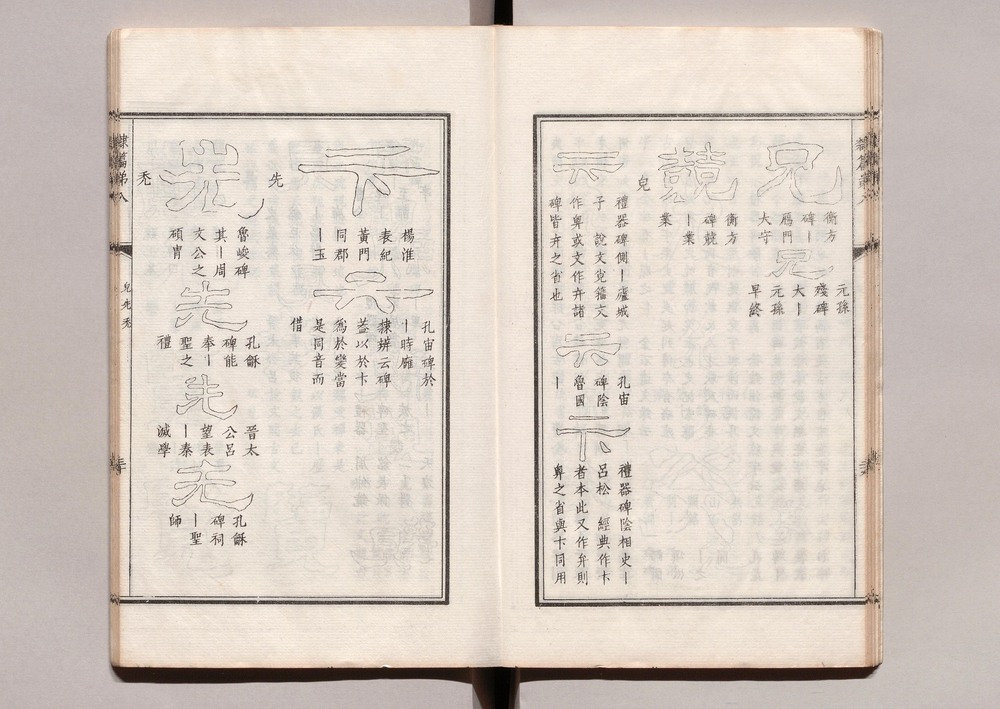 兄
衡方
碑丨
鴈門
大守
兄
元孫
殘碑
大丨
元孫
早終
兢
衡方
碑兢
丨業
業
皃
禮器碑側丨廬城
子　說文皃籀文
作𠔕或文作弁諸
碑皆弁之省也
孔宙
碑陰
魯國
丨
卞
禮器碑陰相史丨
呂松　經典作卞
者本此又作弁則
𠔕之省與卞同用
卞
楊淮
表紀
黃門
同郡
丨玉
孔宙碑於
丨時廱
隸辨云碑
葢以於卞
爲於變當
是同音而
借
先
先
魯峻碑
其丨周
文公之
碩冑
先
孔龢
碑能
奉丨
聖之
禮
先
晉太
公呂
望表
丨秦
滅學
先
孔龢
碑祠
丨聖
師
禿
隸篇第八
皃先禿